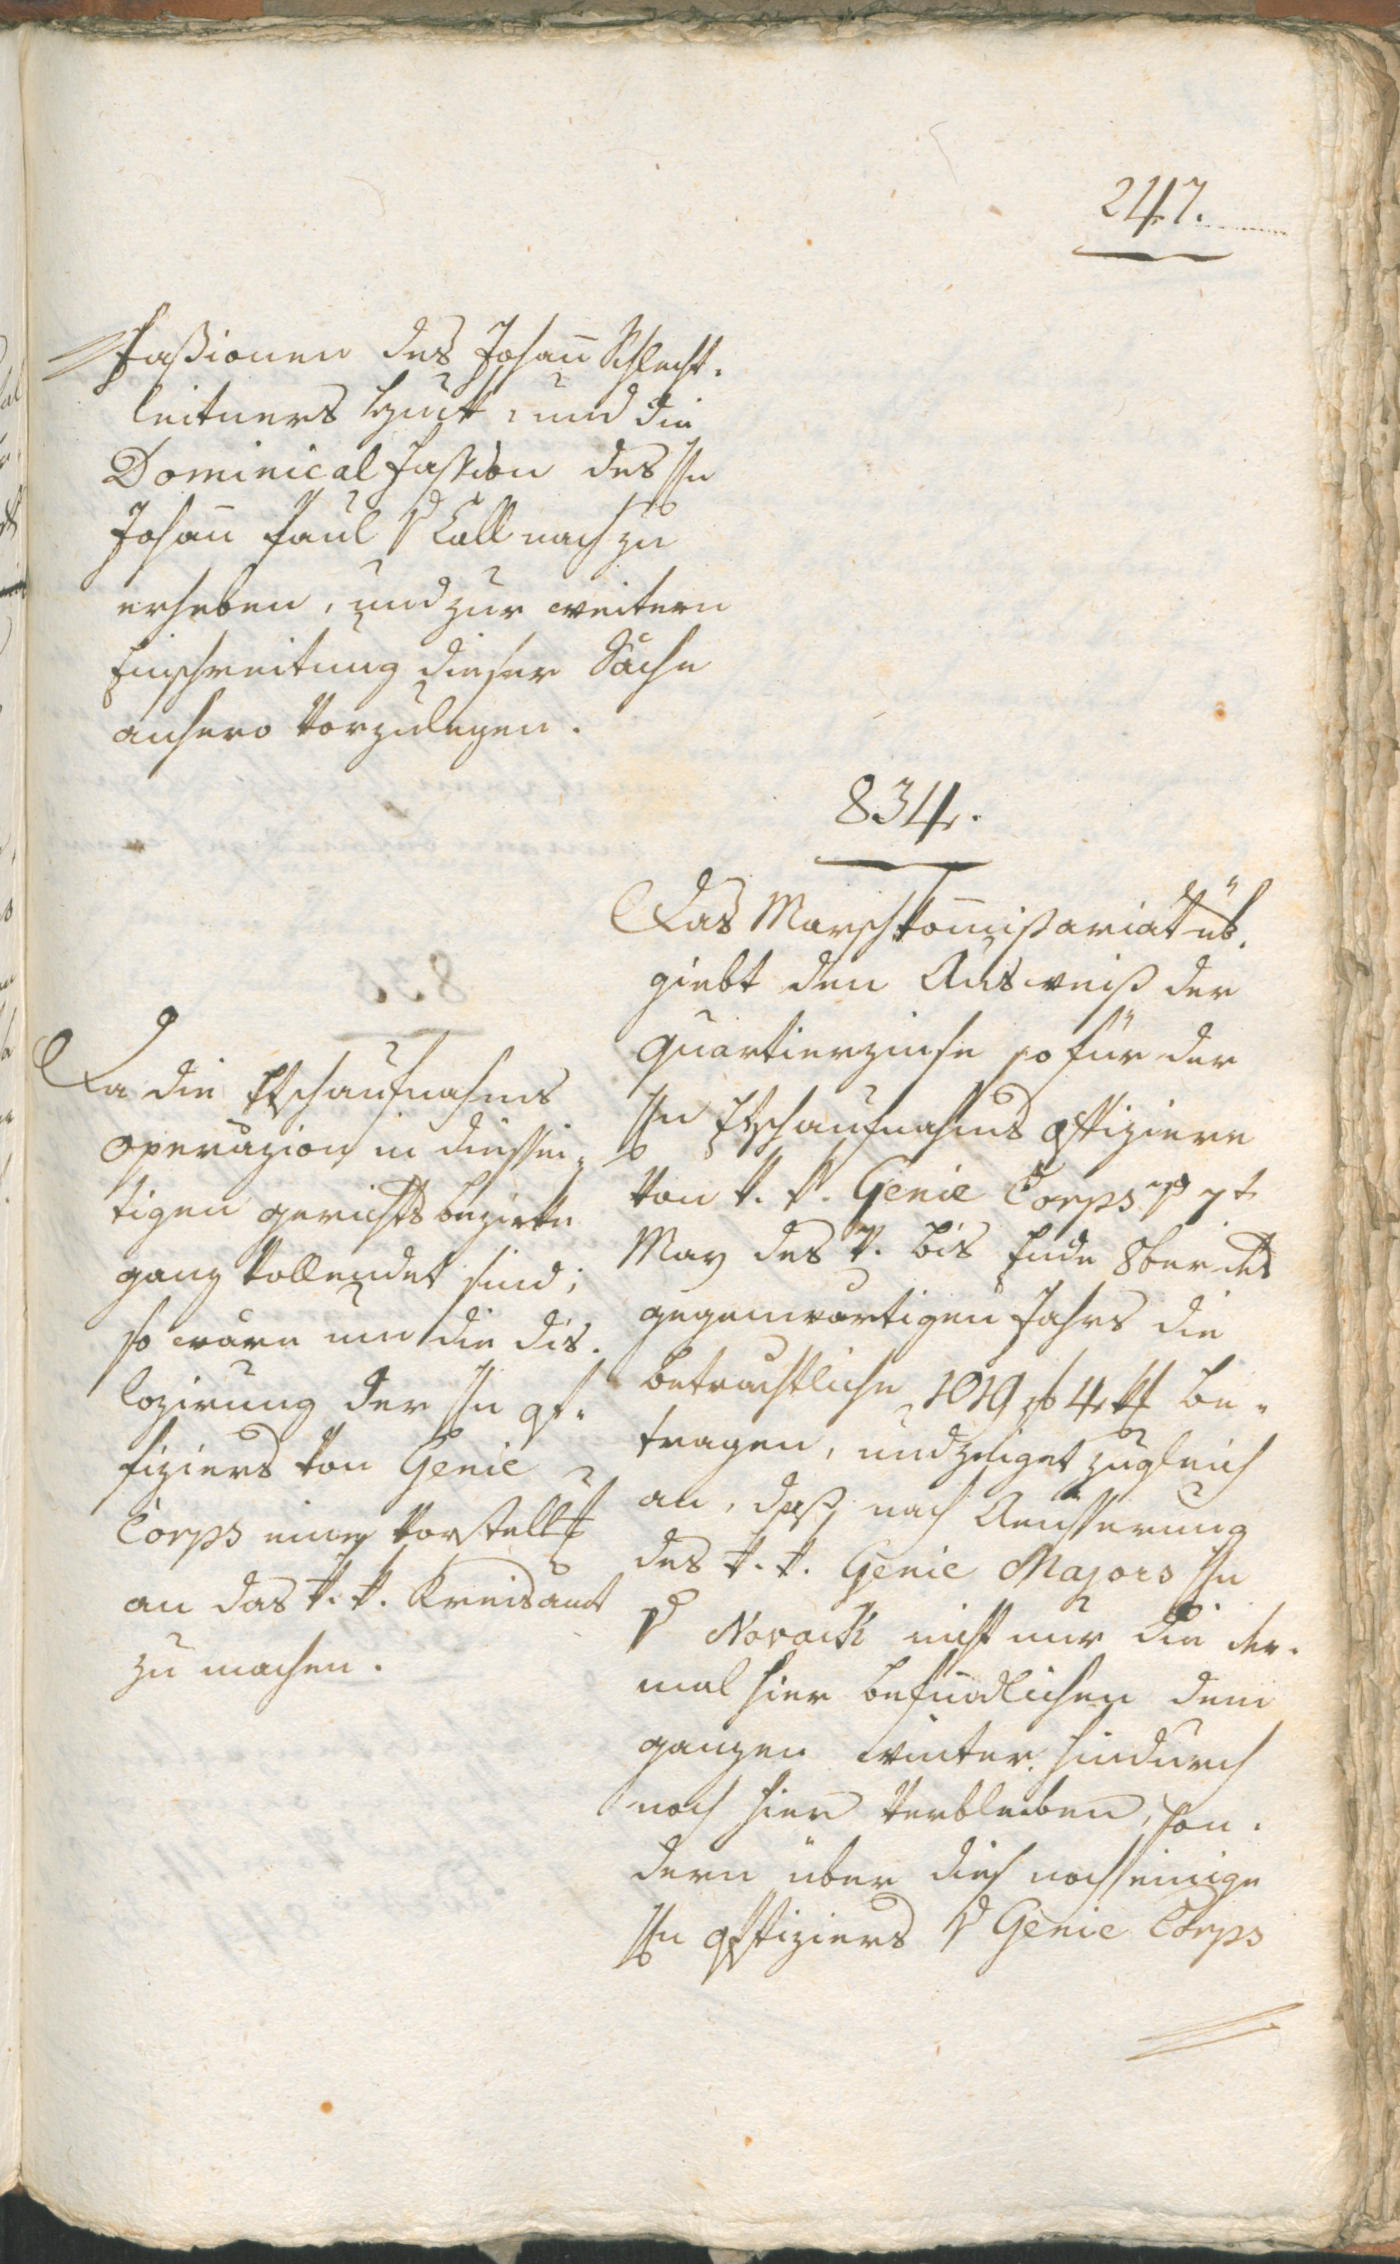 247.
Faßionen des Johann Schlecht-
leitners Hut, und die
Dominical Fassion des Hn
Johann Paul v Call nach zu
erheben, und zur weitern
Einschreitung dieser Sache
anhero vorzulegen.
834.
Das Marschkommißariat üb.
giebt den Ausweiß der
Quartierzinse so für der
Hn Etschaufnahms Offiziere
von k. k. Genie Corps
May des k. bis Ende 8ber des
gegenwärtigen Jahrs die
beträchtliche 1019 f 4 be-
tragen, und zeiget zugleich
an, daß nach Aeusserung
des k. k. Genie Majors Hn
v Novack nicht nur die der-
mal hier befindlichen dem
ganzen Winter hindurch
noch hier verbleiben, son-
dern über dies noch einige
Hn Offiziers v Genie Corps
Da die Etschaufnahms
Operazion in diessei-
tigen Gerichtsbezirke
ganz vollendet sind;
so wäre um die dis-
lozirung der Hn Of-
fiziers von Genie
Corps eine Vorstellg
an das k. k. Kreisamt
zu machen.